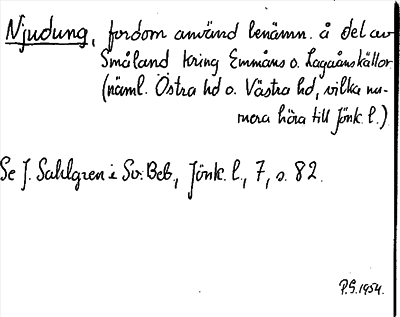 Njudung, fordom använd benämn. å del av
Småland kring Emmåns o. Lagaånskällor
(näml. Östra hd o. Västra hd, vilka nu-
mera höra till Jönk. l.)
Se J. Sahlgren i Sv. Beb., Jönk. l., 7, s. 82.
P.G. 1954.